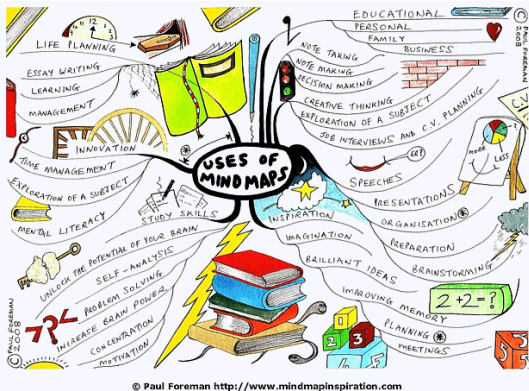 USES OF
MIND MAPS
LIFE PLANNING
ESSAY WRITING
LEARNING
MANAGEMENT
INNOVATION
TIME MANAGEMENT
EXPLORATION OF A SUBJECT
MENTAL LITERACY
STUDY SKILLS
UNLOCK THE POTENTIAL OF YOUR BRAIN
SELF-ANALYSIS
PROBLEM SOLVING
INCREASE BRAIN POWER
CONCENTRATION
MOTIVATION
EDUCATIONAL
PERSONAL
FAMILY
BUSINESS
NOTE TAKING
NOTE MAKING
DECISION MAKING
CREATIVE THINKING
EXPLORATION OF A SUBJECT
JOB INTERVIEWS AND C.V. PLANNING
ER?
SPEECHES
MORE
LESS
PRESENTATIONS
ORGANISATION
PREPARATION
BRAINSTORMING
INSPIRATION
IMAGINATION
BRILLIANT IDEAS
IMPROVING MEMORY
PLANNING
MEETINGS
2+2=?
2
3
12
???
© PAUL FOREMAN 2008
© PAUL FOREMAN 2008
© Paul Foreman http://www.mindmapinspiration.com